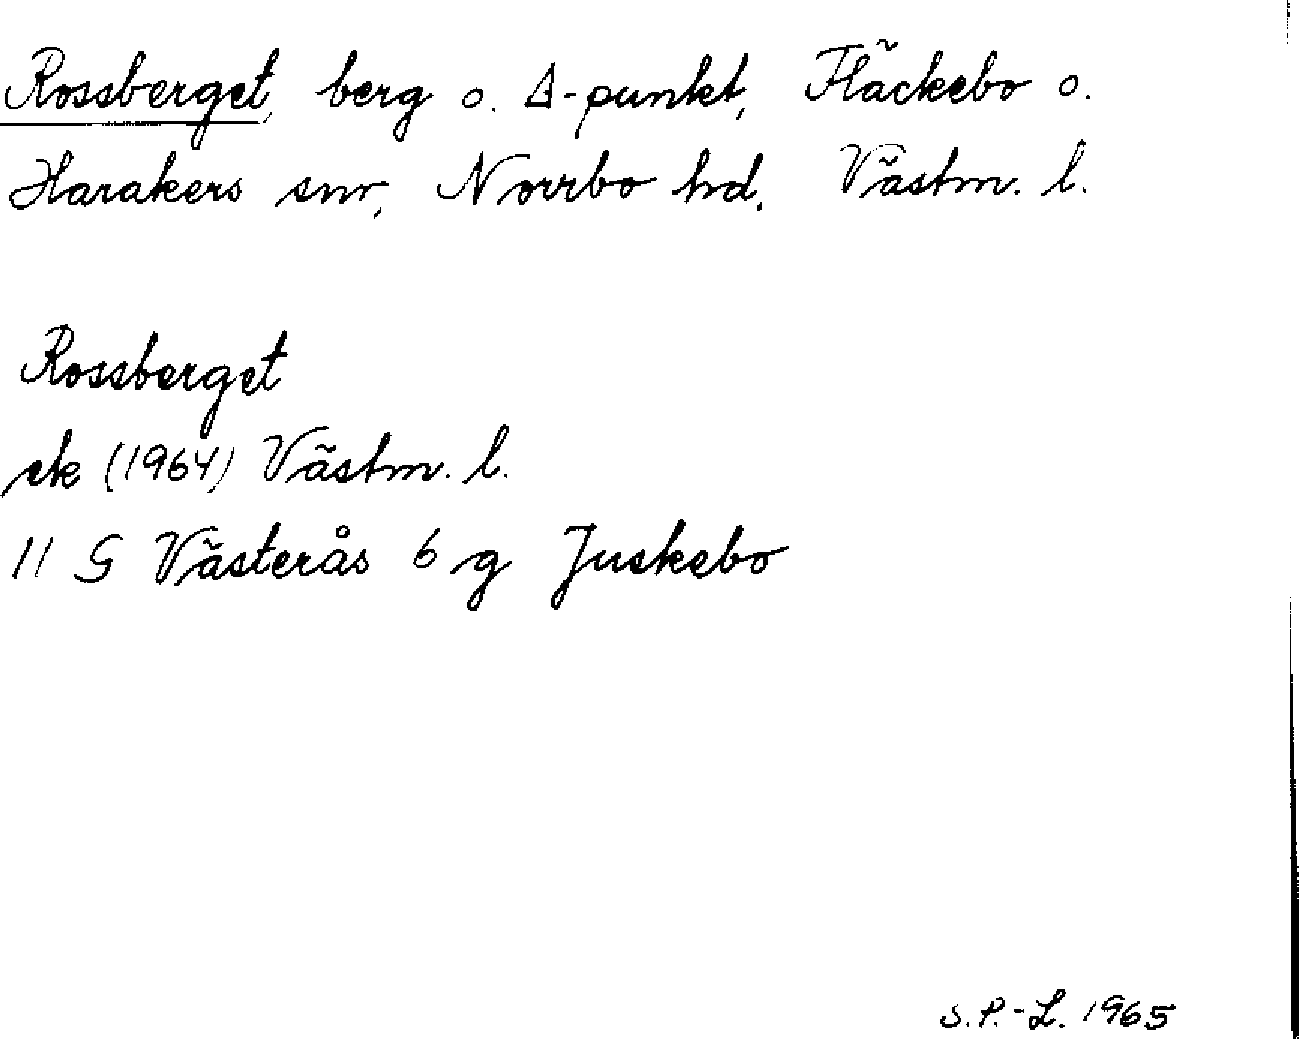 Rossberget, berg o. Δ-punkt, Fläckebo o.
Harakers snr, Norrbo hd, Västm. l.
Rossberget
ek (1964) Västm. l.
11 G Västerås 6 g Juskebo
S.P.-L. 1965